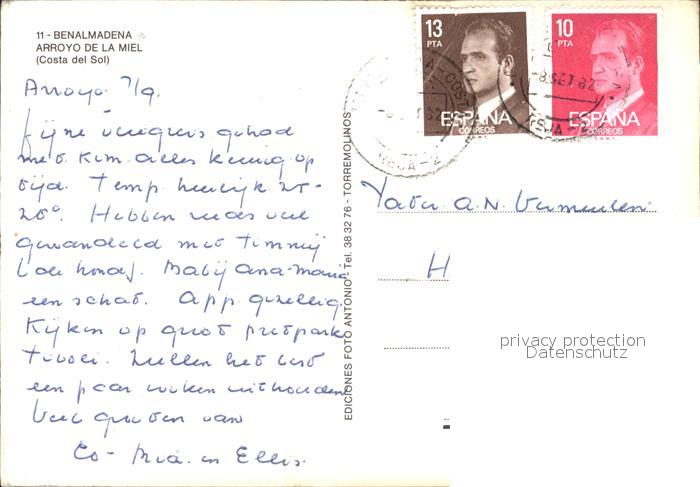 11 - BENALMADENA
ARROYO DE LA MIEL
(Costa del Sol)
Arroyo 7/9.
Fijne vliegreis gehad
met Kim. Alles keurig op
tijd. Temp. heerlijk 25-
28°. Hebben reeds veel
gewandeld met Timmij
(de hond). Baby Ana-Maria
een schat. App. gezellig.
Kijken op groot pretpark
Tivoli. Zullen het best
een paar weken uithouden
Veel groeten van
Co - Mia. en Ellis.
EDICIONES FOTO ANTONIO - Tel. 38 32 76 - TORREMOLINOS
13
PTA
ESPAÑA
CORREOS
10
PTA
ESPAÑA
CORREOS
8 SET 82
A.N. Vermeulen
H
privacy protection
Datenschutz